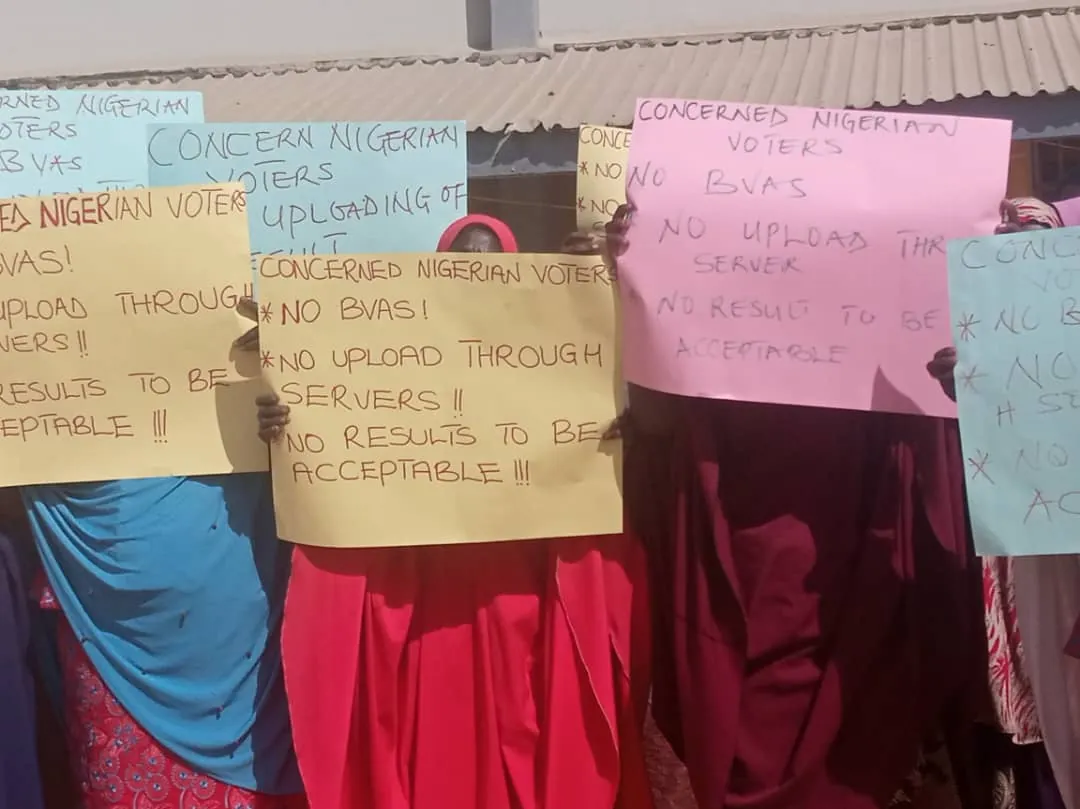 RNED NIGERIAN
OTERS
BVAS
CONCERN NIGERIAN
VOTERS
UPLOADING OF
ED NIGERIAN VOTERS
VAS!
UPLOAD THROUGH
VERS!!
RESULTS TO BE
EPTABLE !!!
CONCERNED NIGERIAN VOTERS
* NO BVAS!
* NO UPLOAD THROUGH
SERVERS !!
NO RESULTS TO BE
ACCEPTABLE !!!
CONCE
* NO
* NO
CONCERNED NIGERIAN
VOTERS
NO BVAS
NO UPLOAD THR
SERVER
NO RESULT TO BE
ACCEPTABLE
CONC
VOT
* NO B
* NO
H SE
* NO
AC